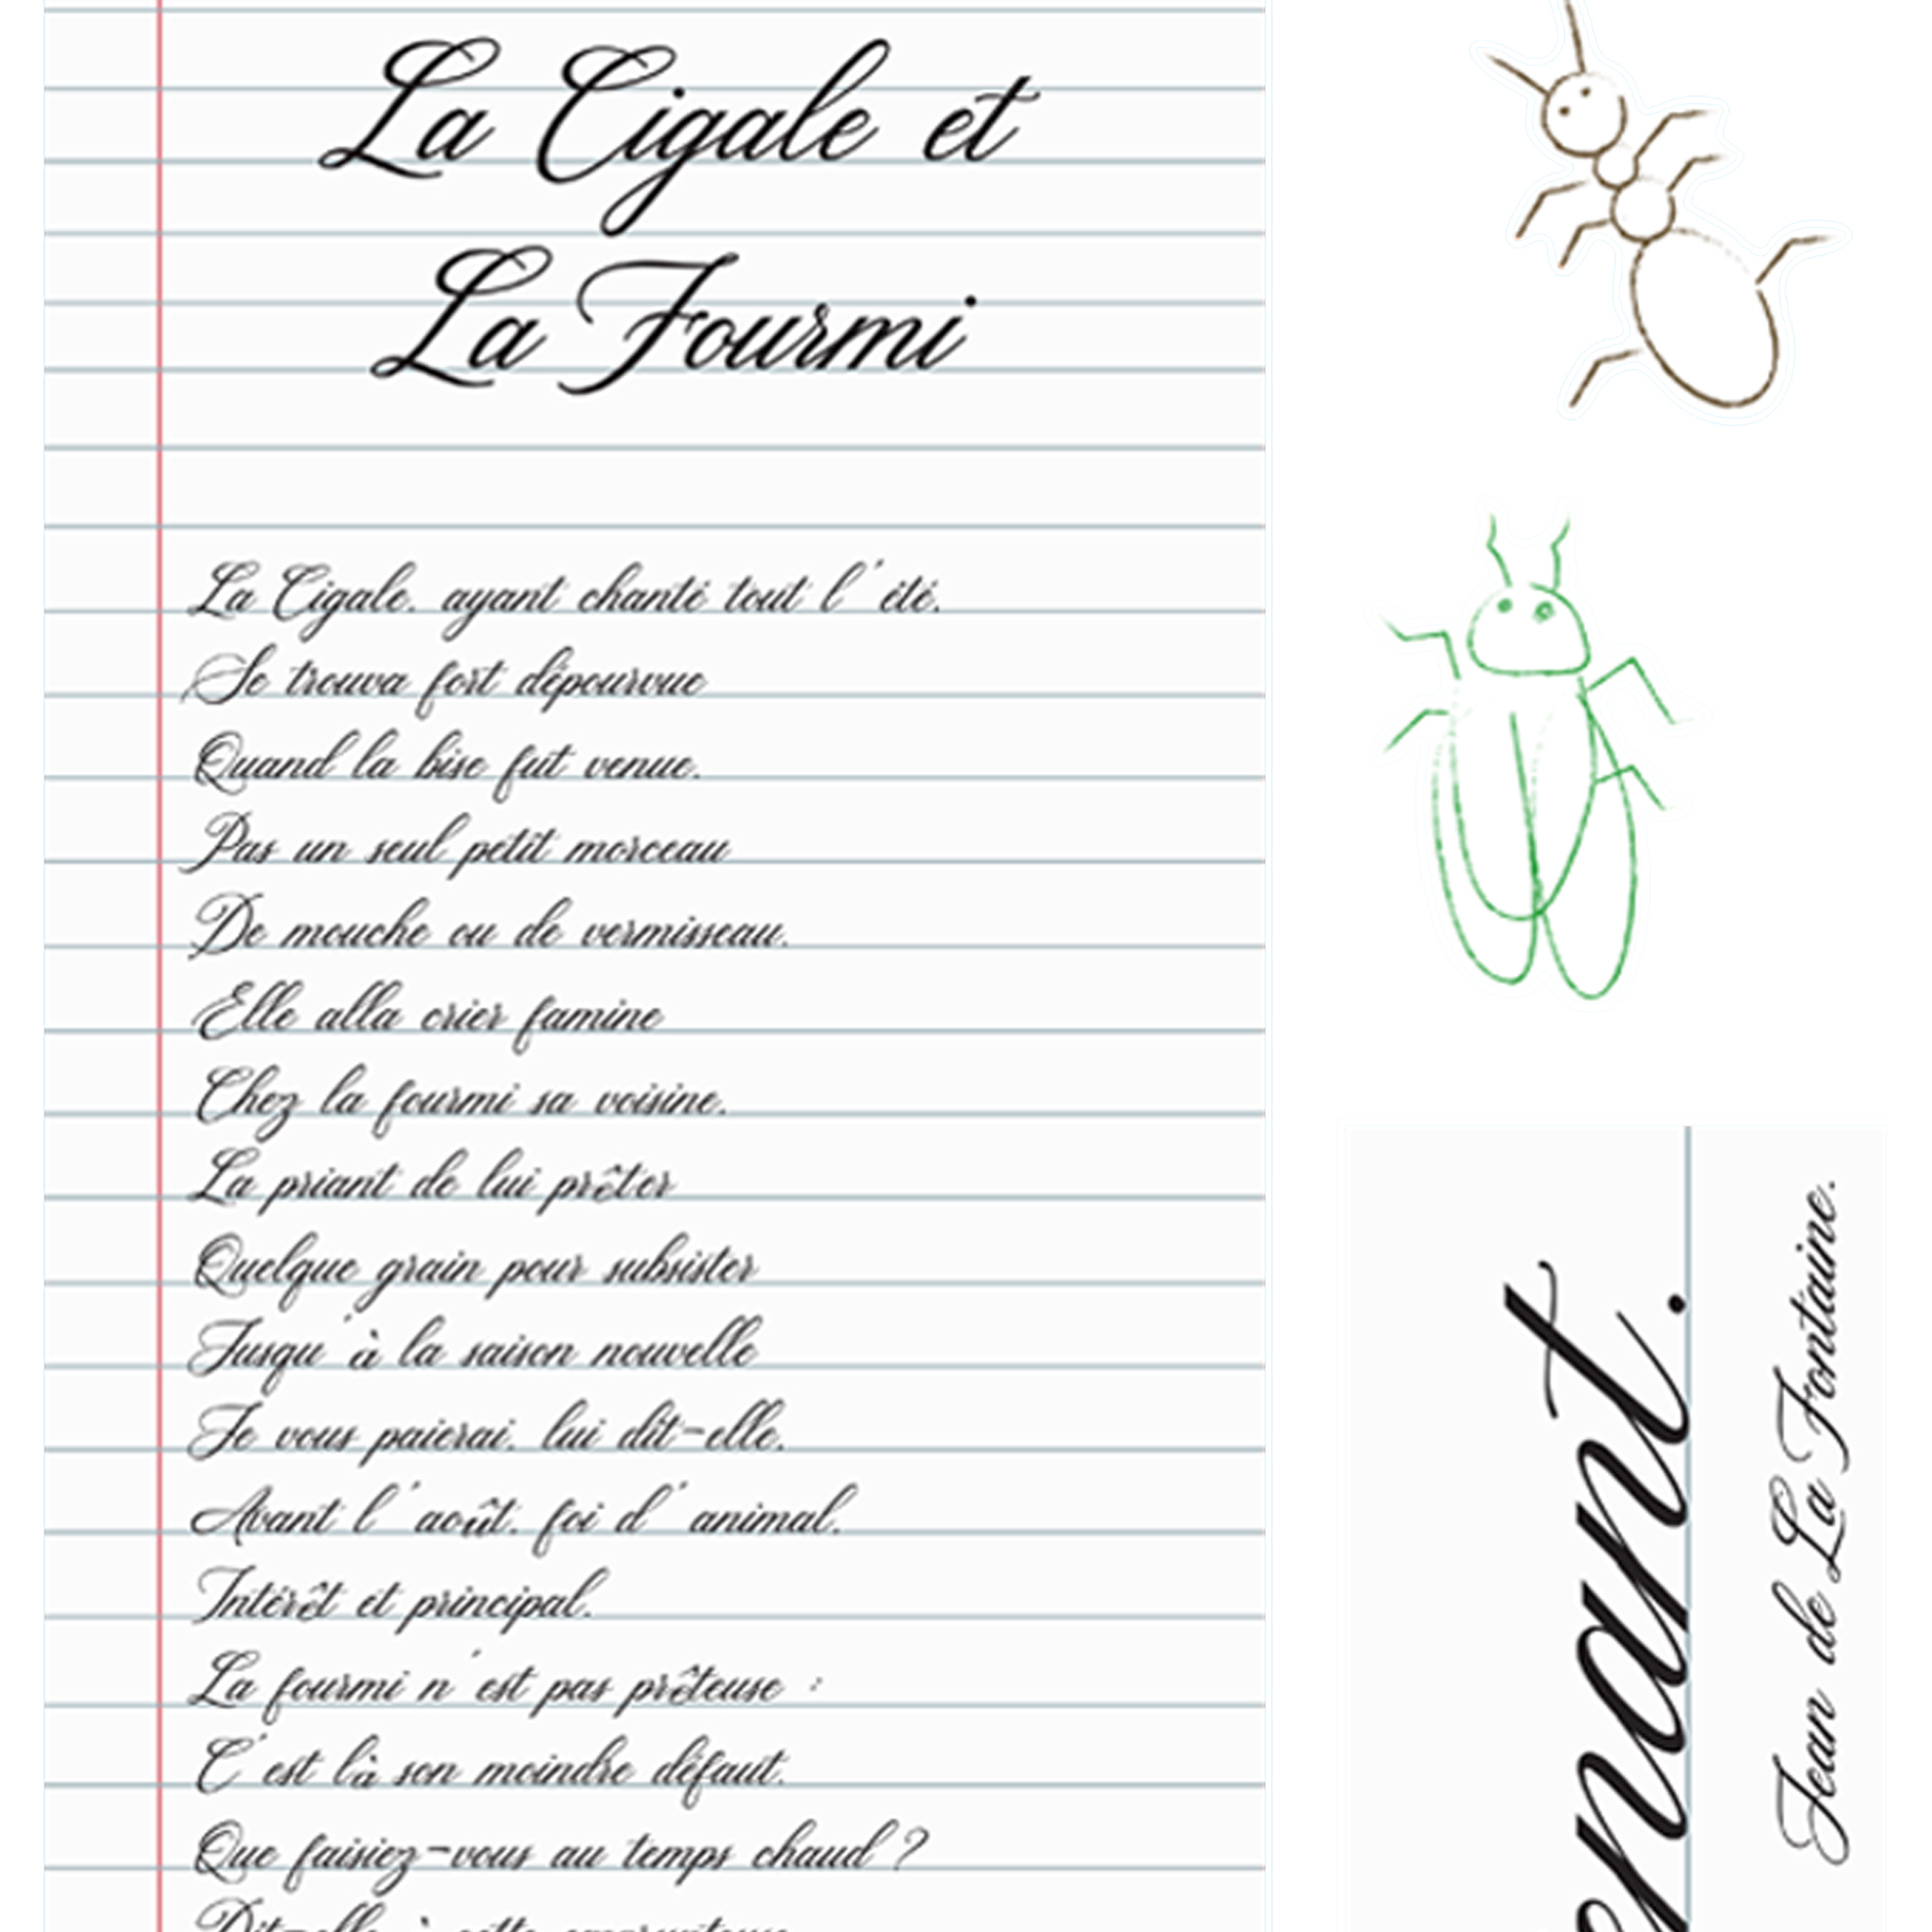 La Cigale et
La Fourmi
La Cigale, ayant chanté tout l'été,
Se trouva fort dépourvue
Quand la bise fut venue.
Pas un seul petit morceau
De mouche ou de vermisseau.
Elle alla crier famine
Chez la fourmi sa voisine,
La priant de lui prêter
Quelque grain pour subsister
Jusqu'à la saison nouvelle
Je vous paierai, lui dit-elle,
Avant l'août, foi d'animal,
Intérêt et principal.
La fourmi n'est pas prêteuse :
C'est là son moindre défaut.
Que faisiez-vous au temps chaud ?
Dit-elle à cette emprunteuse
nant.
Jean de La Fontaine.